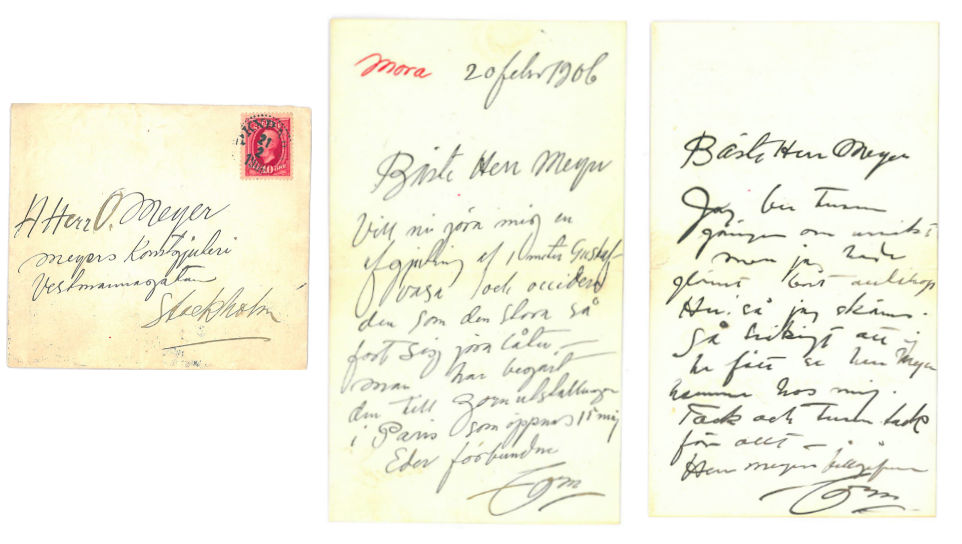 21
2
10 ÖRE
Herr O. Meyer
Meyers Konstgjuteri
Vestmannagatan
Stockholm
Mora 20 febr 1906
Bäste Herr Meyer
Vill ni göra mig en
afgjutning af 1 meter Gustaf
Vasa och
den som den stora så
fort sig göra låter –
man har begärt
den till Zornutställningen
i Paris som öppnas 15 maj
Eder förbundne
Zorn
Bäste Herr Meyer
Jag ber tusen
gånger om
men jag hade
glömt bort
så jag skäms.
Så att
få se herr Meyer
komma hos mig.
Tack och tusen tack
för allt –
Herr Meyers tillgifne
Zorn